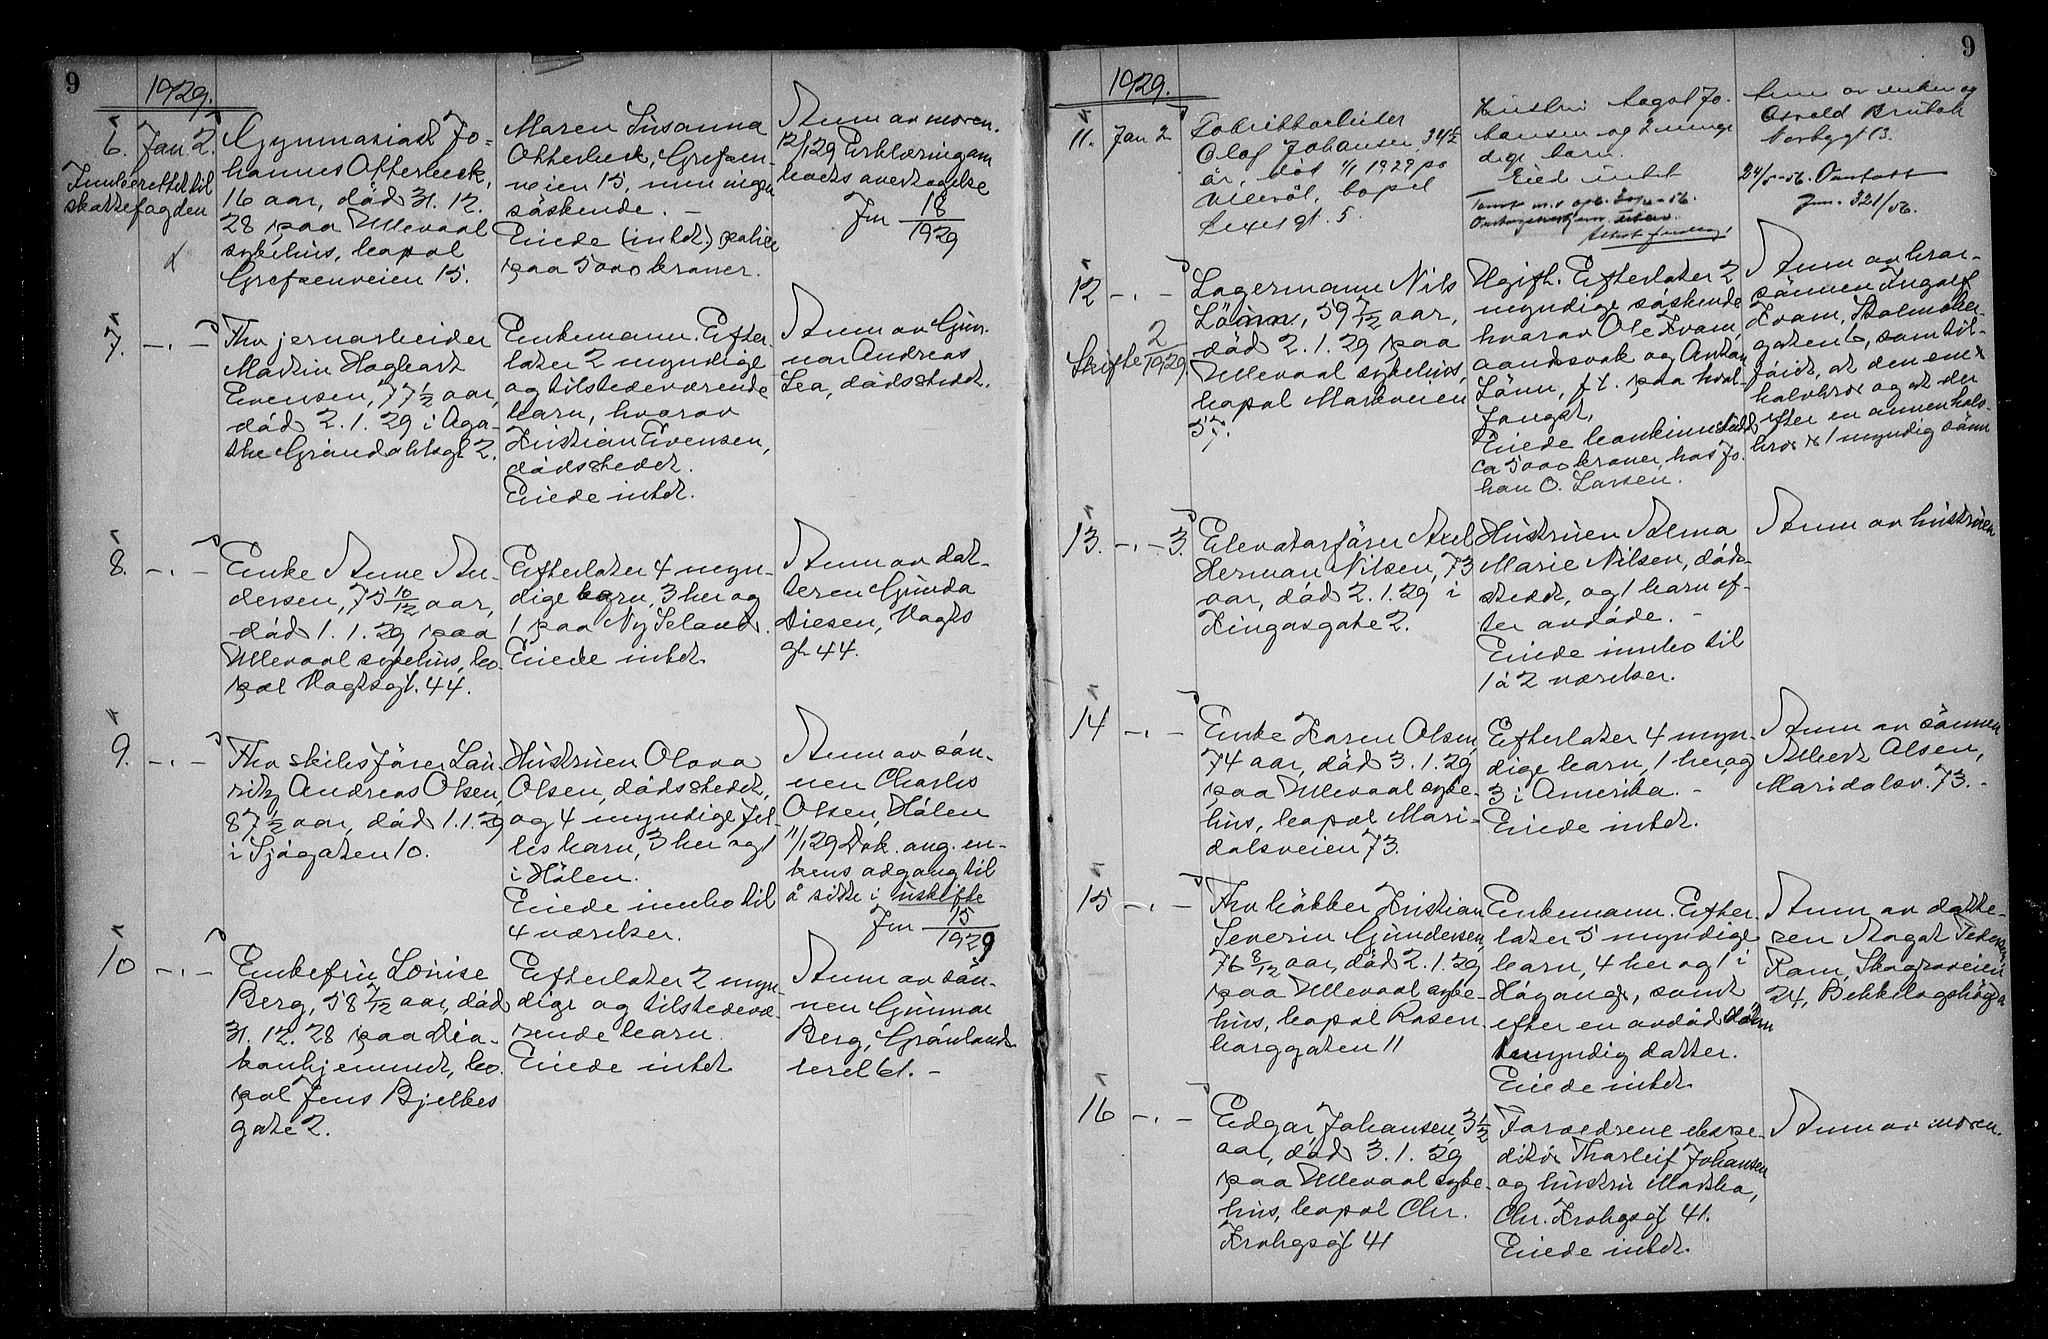 9
1929.
6. Jan. 2.
Innberettet til
skattefogden
Gymnasiast Jo-
hannes Otterbeck,
16 aar, död 31. 12.
28 paa Ullevaal
sykehus, bopæl
Grefsenveien 15.
Maren Susanna
Otterbeck, Grefsen-
veien 15, men ingen
söskende. –
Eiede (intet) police
paa 5000 kroner.
Anm. av moren.
12/1 29 Erklæring om
boets overtagelse
Jnr 18
1929
7. -.-
Fhv jernarbeider
Martin Hagbart
Evensen, 77 1/2 aar,
död 2. 1. 29 i Aga-
the Gröndahlsgt 2.
Enkemann. Efter-
later 2 myndige
og tilstedeværende
barn, hvorav
Kristian Evensen,
dödsstedet.
Eiede intet.
Anm. av Gun-
nar Andreas
Lea, dödsstedet.
8. -.-
Enke Anne An-
dersen, 75 10/12 aar,
död 1. 1. 29 paa
Ullevaal sykehus, bo-
pæl Vogtsgt. 44.
Efterlater 4 myn-
dige barn, 3 her og
1 paa Ny Seland.
Eiede intet.
Anm. av dat-
teren Gunda
Diesen, Vogts
gt 44.
9. -.-
Fhv skibsförer Lau-
ritz Andreas Olsen,
87 1/2 aar, död 1. 1. 29
i Sjögaten 10.
Hustruen Olava
Olsen, dödsstedet,
og 4 myndige fel-
les barn, 3 her og 1
i Hölen.
Eiede innbo til
4 værelser.
Anm. av sön-
nen Charles
Olsen, Hölen
11/1 29 Dok. ang. en-
kens adgang til
å sitte i uskifte
Jnr 15
1929
10 -.-
Enkefru Louise
Berg, 58 7/12 aar, död
31. 12. 28 paa Dia-
konhjemmet, bo-
pæl Jens Bjelkes
gate 2.
Efterlater 2 myn-
dige og tilstedevæ-
rende barn.
Eiede intet
Anm. av sön-
nen Gunnar
Berg, Grönlands-
leret 61. –
9
1929.
11. Jan 2
Fabrikkarbeider
Olaf Johansen, 34
år, död 1/1 1929 på
Ullevål, bopel
Lexesgt. 5.
Hustru Aagot Jo-
hansen og 2 umyn-
dige barn.
Eiede intet
Anm av enken og
Osvald
24/5-56.
Jnr. 321/56.
12 -.-
Skifte 2
1929
Lagermann Nils
Lönn, 59 7/12 aar,
död 2. 1. 29 paa
Ullevaal sykehus,
bopæl Markveien
57.
Ugift. Efterlater 2
myndige söskende
hvorav Ole Kvam,
aandssvak og Anton
Lönn, f t. paa hval-
fangst.
Eiede bankinnskudd
ca 5000 kroner, hos Jo-
han O. Larsen.
Anm av bror-
sönnen Ingolf
Kvam, Stolmaker-
gaten 6, som til-
föiet, at den ene er
halvbror og at der
efter en annen halv-
bror er 1 myndig sönn
13. -.- 3.
Elevatorförer Axel
Herman Nilsen, 73
aar, död 2. 1. 29 i
Kingosgate 2.
Hustruen Alma
Marie Nilsen, död-
stedet, og 1 barn ef-
ter avdöde. –
Eiede innbo til
1 à 2 værelser.
Anm av hustruen
14 -.-
Enke Karen Olsen,
74 aar, död 3. 1. 29
paa Ullevaal syke-
hus, bopæl Mari-
dalsveien 73.
Efterlater 4 myn-
dige barn, 1 her, og
3 i Amerika. –
Eiede intet.
Anm av sönnen
Albert Olsen,
Maridalsv. 73. –
15 -.-
Fhv hökker Kristian
Severin Gundersen,
76 8/12 aar, död 2. 1. 29
paa Ullevaal syke-
hus, bopæl Rosen-
borggaten 11
Enkemann. Efter-
later 5 myndige
barn, 4 her og 1 i
Höyanger, samt
efter en avdöd sönn
1 umyndig datter.
Eiede intet.
Anm av datte-
ren Aagot Pedersen
Ram, Skogroveien
24, Bekkelagshögda
16 -.-
Edgar Johansen, 3 1/2
aar, död 3. 1. 29
paa Ullevaal syke-
hus, bopæl Chr.
Krohgsgt 41
Foreldrene ekspe-
ditör Thorleif Johansen
og hustru Martha,
Chr. Krohgsgt 41.
Eiede intet.
Anm av moren.